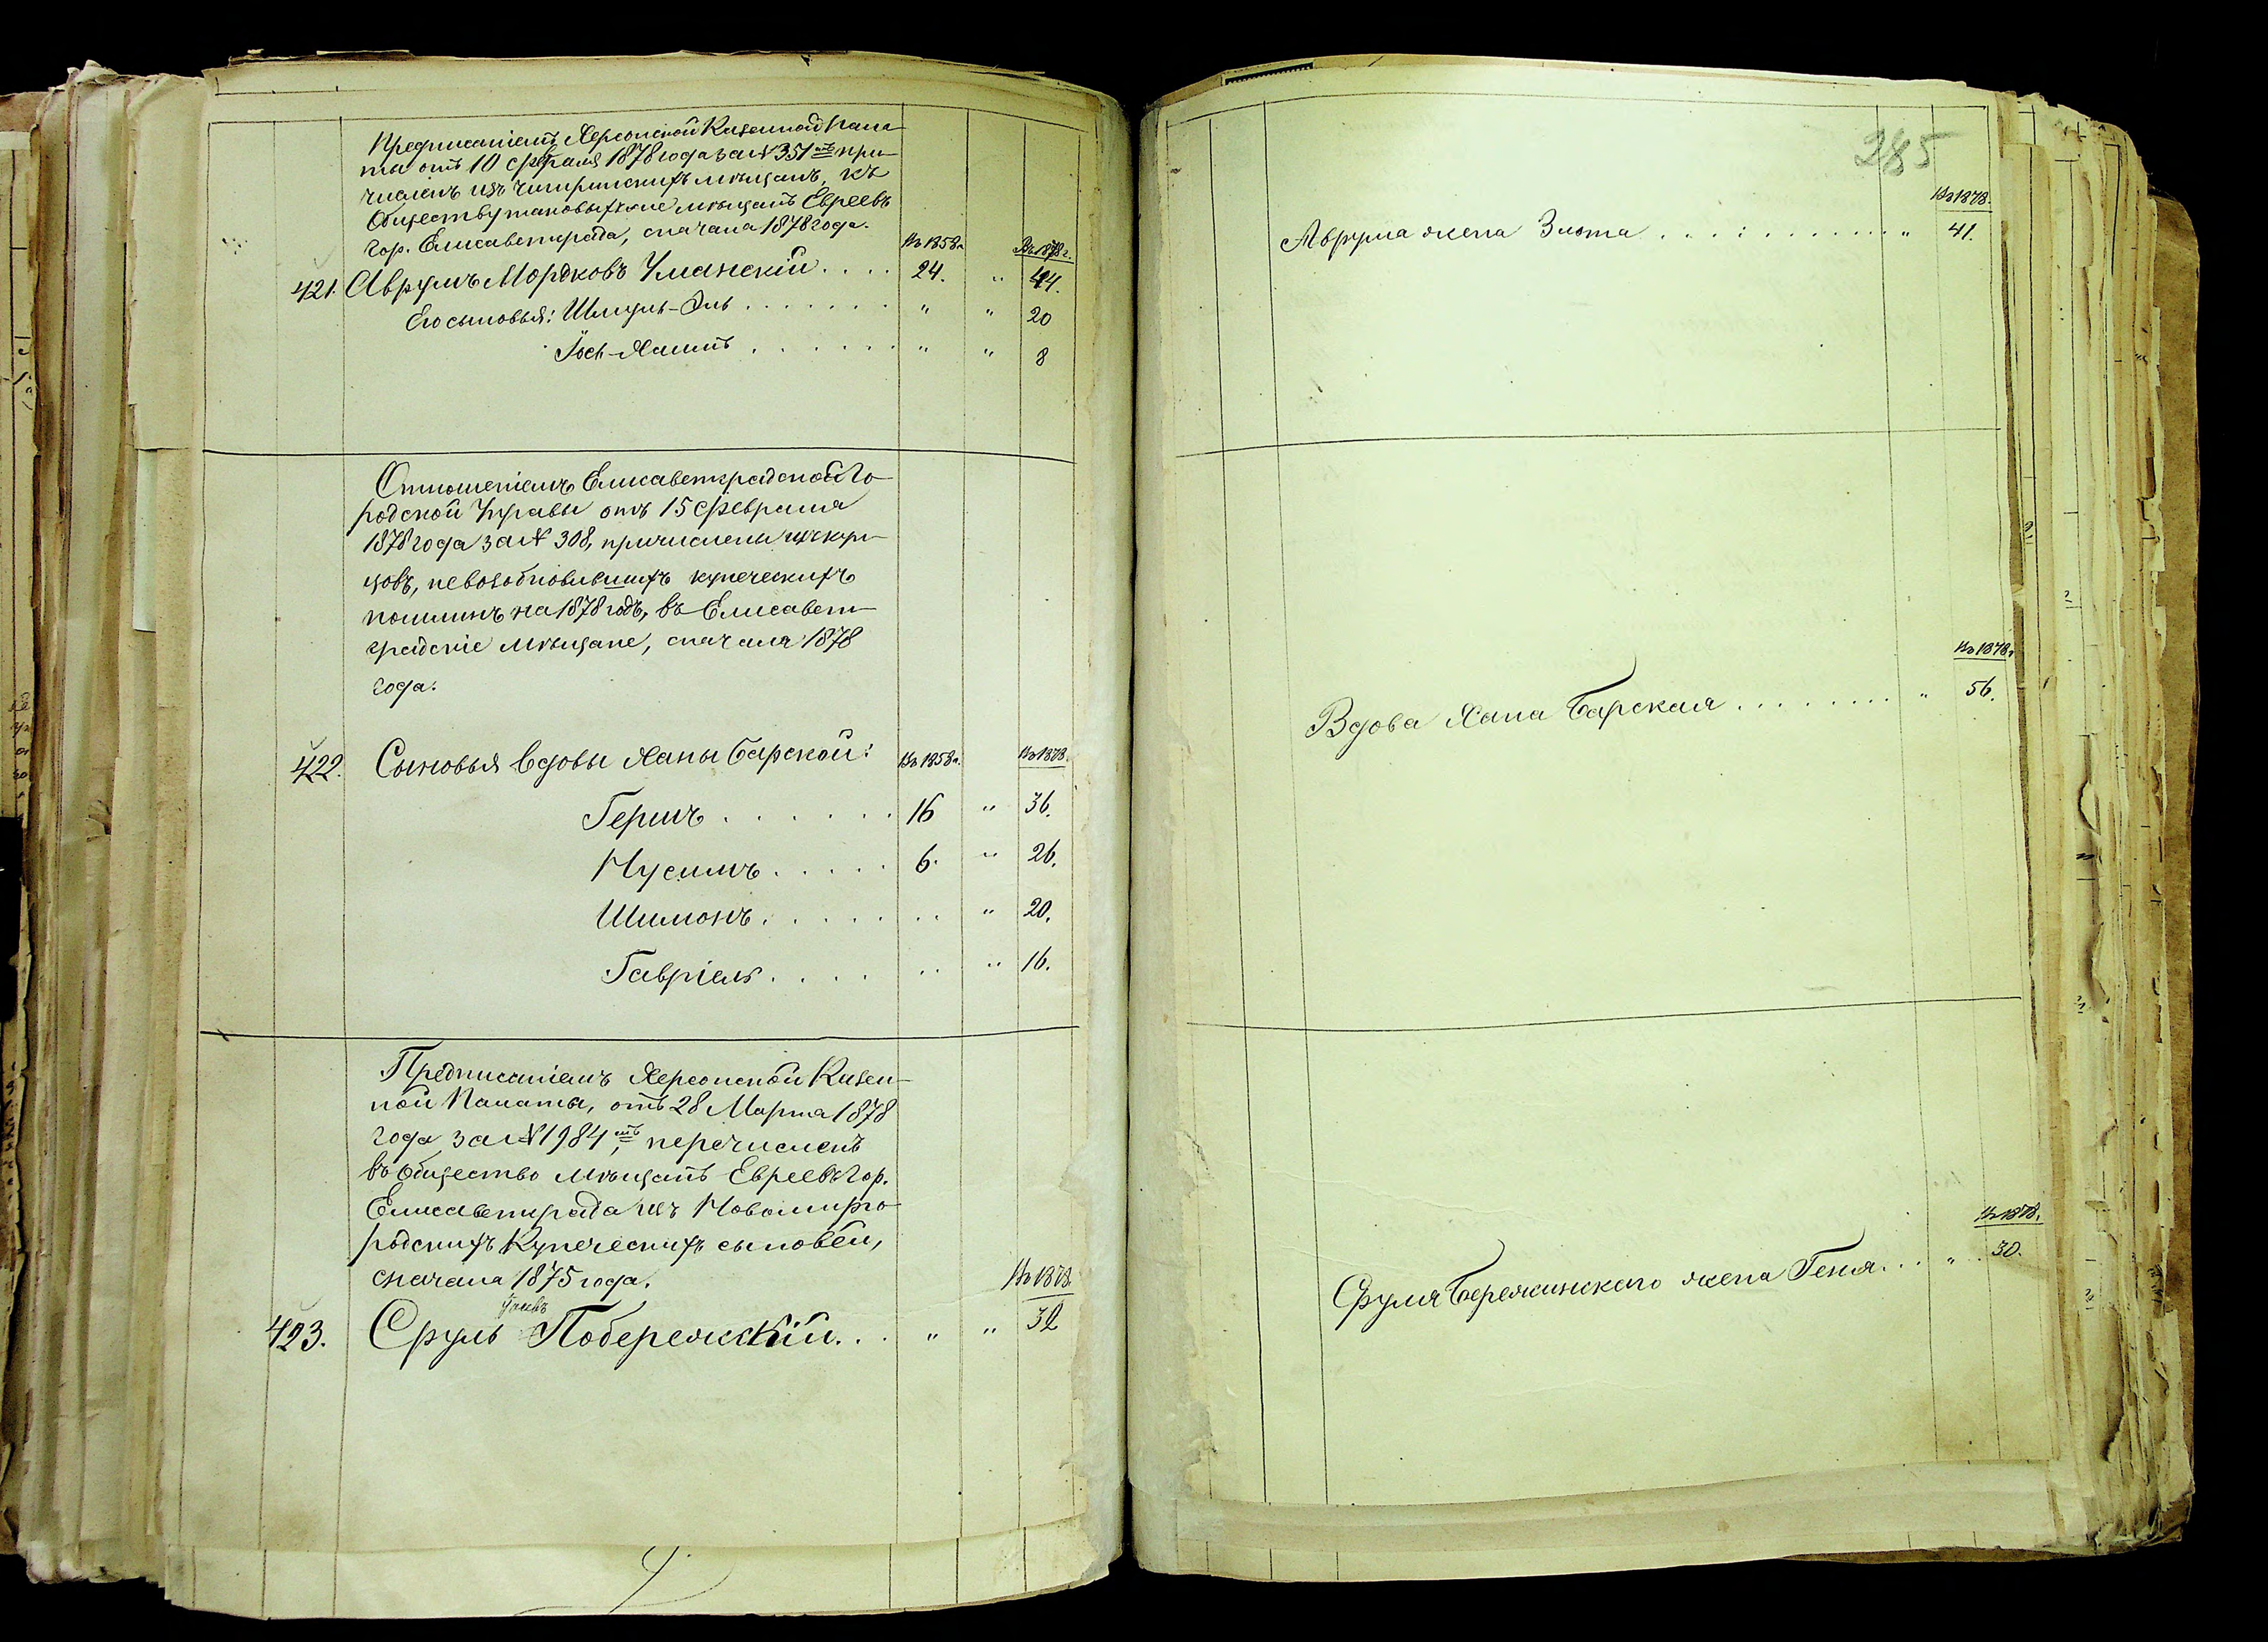 Предписаніемъ Херсонской Казенной Пала-
ты отъ 10 февраля 1878 года за № 351мъ при-
численъ изъ Чигиринскихъ мѣщанъ, къ
Обществу таковыхъ же мѣщанъ Евреевъ
гор. Елисаветграда, сначала 1878 года.
Въ 1858 г. Въ 1878 г.
421. Аврумъ Мордковъ Уманскій . . . . 24. " 44.
Его сыновья: Шмуль-Эль . . . . . . . " " 20
Іось-Хаимъ . . . . . . " " 8
Отношеніемъ Елисаветградской Го-
родской Управы отъ 15 февраля
1878 года за № 308, причислены изъ куп-
цовъ, невозобновившихъ купеческихъ
пошлинъ на 1878 годъ, въ Елисавет-
градскіе мѣщане, сначала 1878
года.
422. Сыновья вдовы Ханы Барской: Въ 1858 г. Въ 1878.
Гершъ . . . . . . 16 " 36.
Нусимъ . . . . . 6. " 26.
Шимонъ . . . . . . " " 20.
Гавріель . . . . " " 16.
Предписаніемъ Херсонской Казен-
ной Палаты, отъ 28 Марта 1878
года за № 1984мъ, перечисленъ
въ общество мѣщанъ Евреевъ гор.
Елисаветграда изъ Новомирго-
родскихъ Купеческихъ сыновей,
сначала 1875 года.
Въ 1878.
423. Сруль Побережскій . . . " " 32
285
Въ 1878.
Аврума жена Злота . . . . . . . . . . . " 41.
Въ 1878 г.
Вдова Хана Барская . . . . . . . . " 56.
Въ 1878.
Сруля Бережинскаго жена Геня . . . " 30.